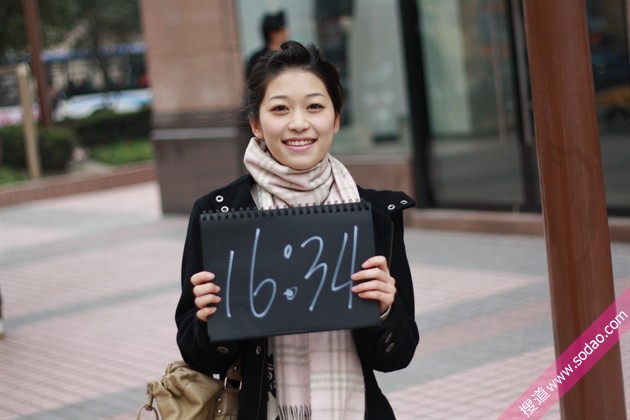 16:34
搜道www.sodao.com